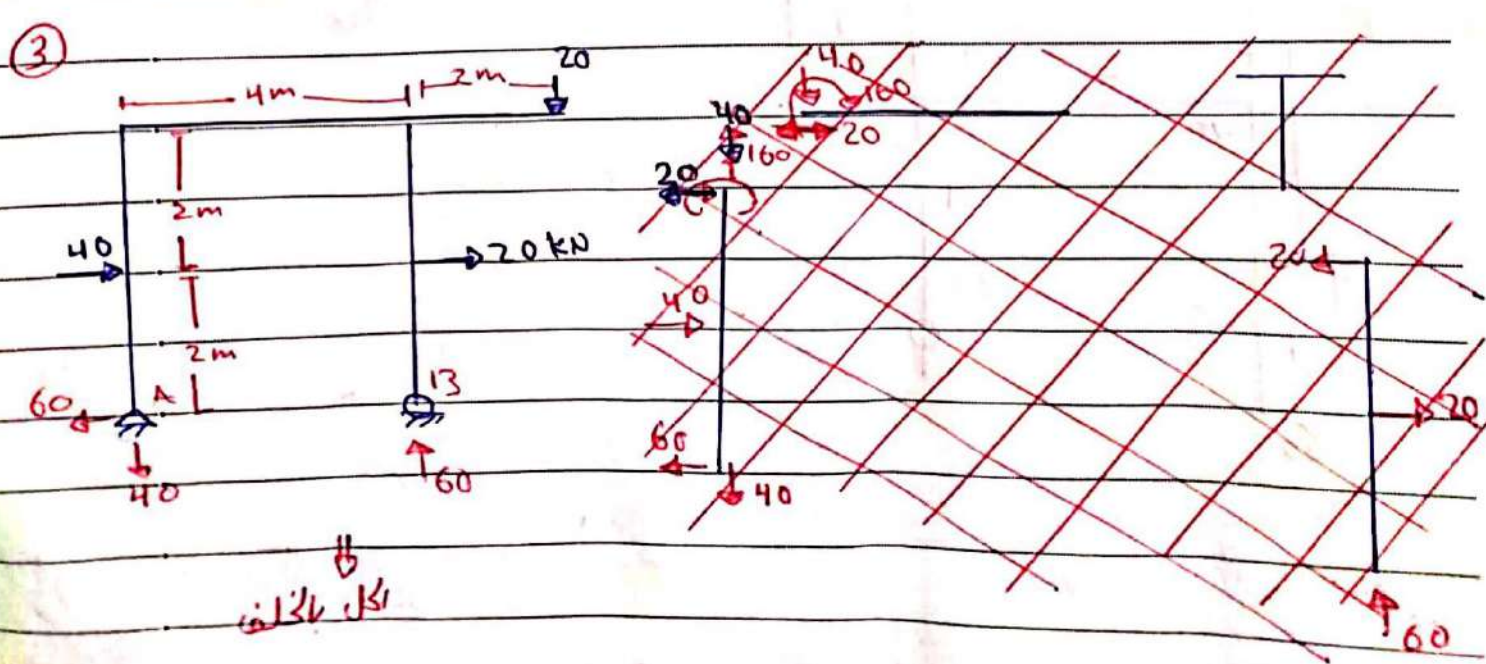 ③
20
4m 2m
2m
40
20 kN
2m
60 A
B
40
60
الحل بالخلف
40
160
20
40
160
20
40
60
40
20
20
60